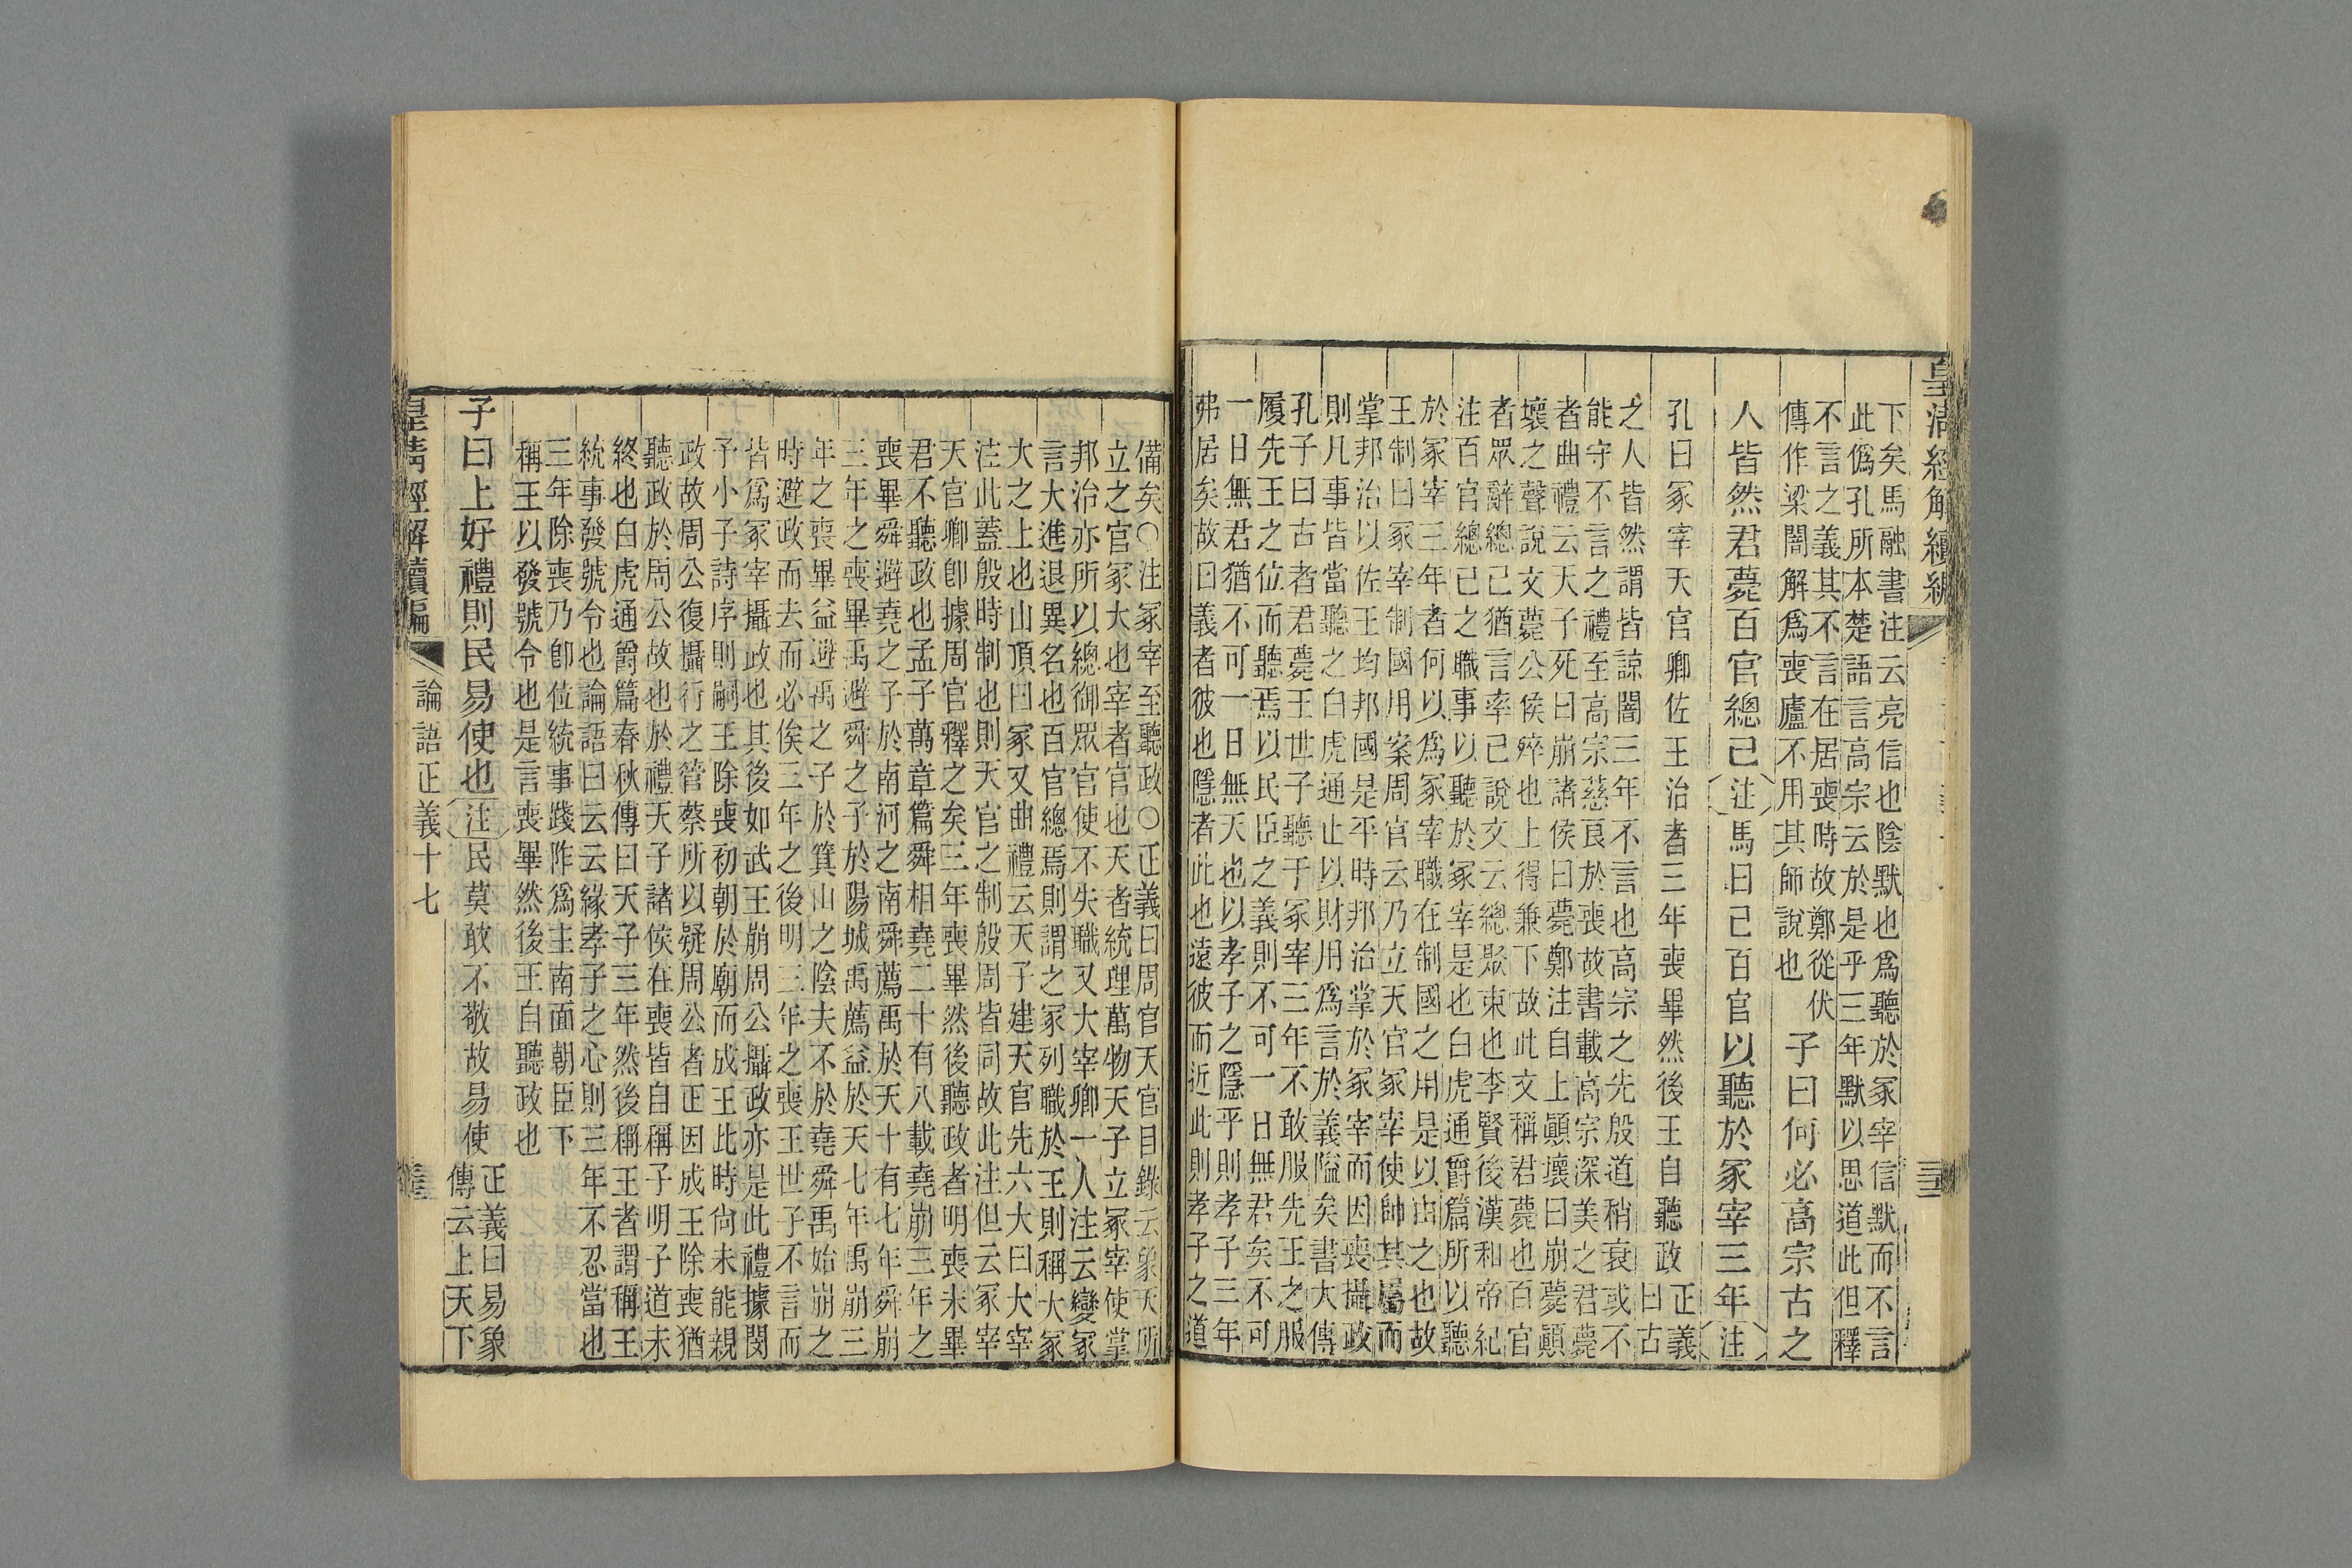 皇清經解續編
下矣馬融書注云亮信也陰默也爲聽於冢宰信默而不言
此僞孔所本楚語言高宗云於是乎三年默以思道此但釋
不言之義其不言在居喪時故鄭從伏
傳作梁闇解爲喪廬不用其師說也
子曰何必高宗古之
人皆然君薨百官總己注馬曰己百官以聽於冢宰三年注
孔曰冢宰天官卿佐王治者三年喪畢然後王自聽政
正義
曰古
之人皆然謂皆諒闇三年不言也高宗之先殷道稍衰或不
能守不言之禮至高宗慈良於喪故書載高宗深美之君薨
者曲禮云天子死曰崩諸侯曰薨鄭注自上顚壞曰崩薨顚
壞之聲說文薨公侯殚也上得兼下故此文稱君薨也百官
者眾辭總己猶言率己說文云總聚束也李賢後漢和帝紀
注百官總己之職事以聽於冢宰是也白虎通爵篇所以聽
於冢宰三年者何以爲冢宰職在制國之用是以由之也故
王制曰冢宰制國用案周官云乃立天官冢宰使帥其屬而
掌邦治以佐王均邦國是平時邦治掌於冢宰而因喪攝政
則凡事皆當聽之白虎通止以財用爲言於義隘矣書大傳
孔子曰古者君薨王世子聽于冢宰三年不敢服先王之服
履先王之位而聽焉以民臣之義則不可一日無君矣不可
一日無君猶不可一日無天也以孝子之隱乎則孝子三年
弗居矣故曰義者彼也隱者此也遠彼而近此則孝子之道
備矣○注冢宰至聽政○正義曰周官天官目錄云象天所
立之官冢大也宰者官也天者統理萬物天子立冢宰使掌
邦治亦所以總御眾官使不失職又大宰卿一人注云變冢
言大進退異名也百官總焉則謂之冢列職於王則稱大冢
大之上也山頂曰冢又曲禮云天子建天官先六大曰大宰
注此蓋殷時制也則天官之制殷周皆同故此注但云冢宰
天官卿卽據周官釋之矣三年喪畢然後聽政者明喪未畢
君不聽政也孟子萬章篇舜相堯二十有八載堯崩三年之
喪畢舜避堯之子於南河之南舜薦禹於天十有七年舜崩
三年之喪畢禹避舜之子於陽城禹薦益於天七年禹崩三
年之喪畢益避禹之子於箕山之陰夫不於堯舜禹始崩之
時避政而去而必俟三年之後明三年之喪王世子不言而
皆爲冢宰攝政也其後如武王崩周公攝政亦是此禮據閔
予小子詩序則嗣王除喪初朝於廟而成王此時尙未能親
政故周公復攝行之管蔡所以疑周公者正因成王除喪猶
聽政於周公故也於禮天子諸侯在喪皆自稱子明子道未
終也白虎通爵篇春秋傳曰天子三年然後稱王者謂稱王
統事發號令也論語曰云云緣孝子之心則三年不忍當也
三年除喪乃卽位統事踐阼爲主南面朝臣下
稱王以發號令也是言喪畢然後王自聽政也
子曰上好禮則民易使也注民莫敢不敬故易使
正義曰易象
傳云上天下
皇清經解續編
論語正義十七